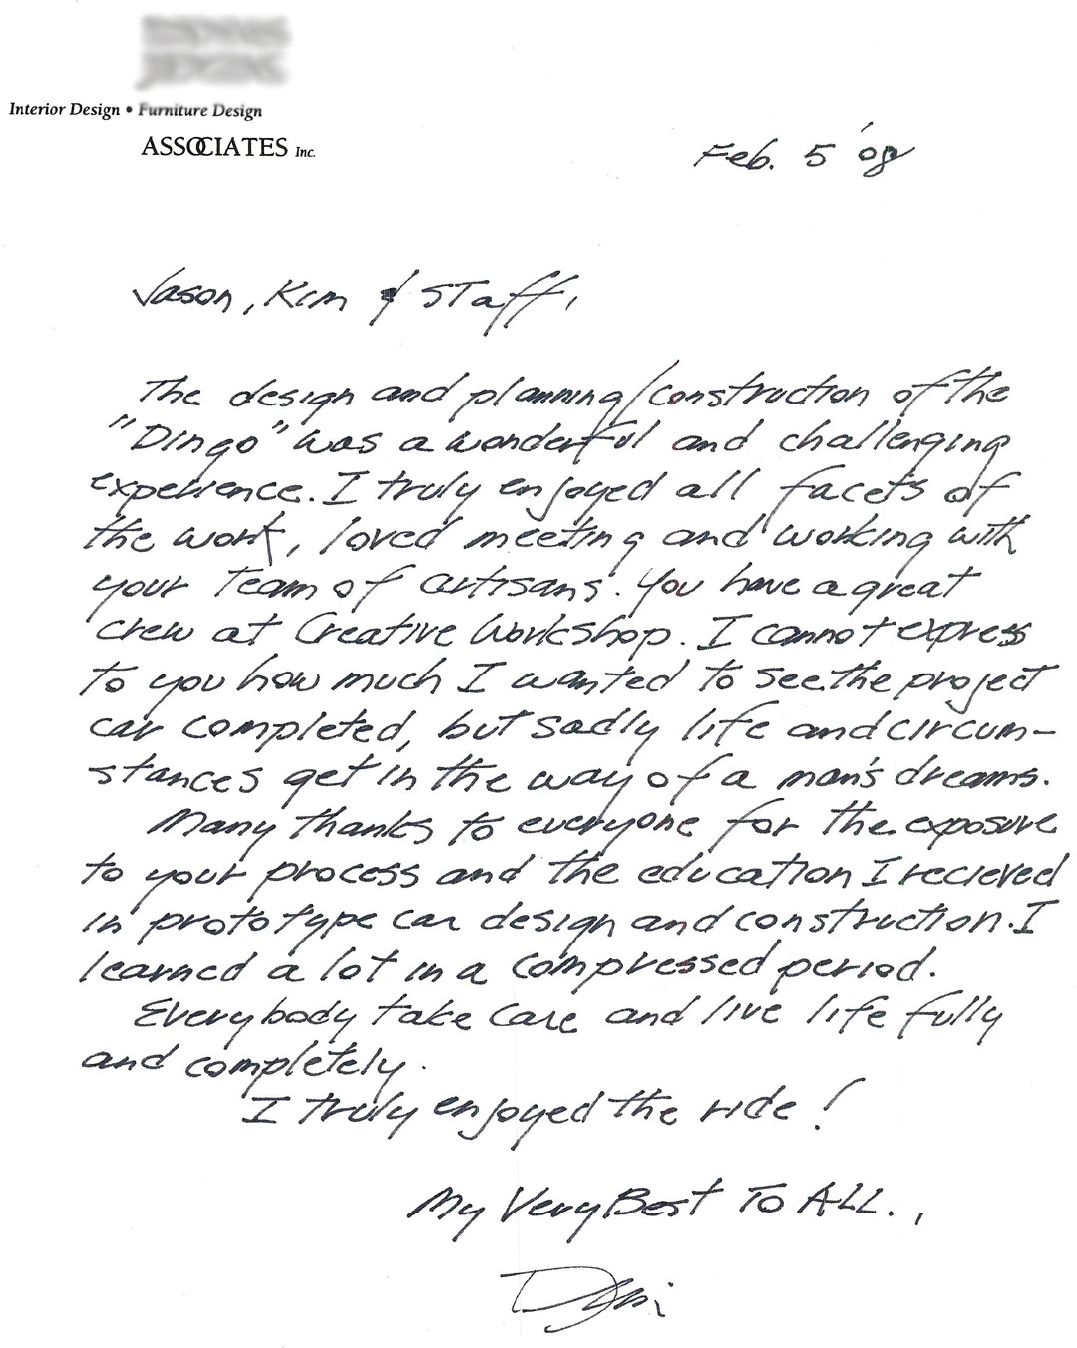 Interior Design • Furniture Design
ASSOCIATES Inc.
Feb. 5 '08
Jason, Kim & Staff,
The design and planning/construction of the
"Dingo" was a wonderful and challenging
experience. I truly enjoyed all facets of
the work, loved meeting and working with
your team of artisans. You have a great
crew at Creative Workshop. I cannot express
to you how much I wanted to see the project
car completed, but sadly life and circum-
stances get in the way of a man's dreams.
Many thanks to everyone for the exposure
to your process and the education I recieved
in prototype car design and construction. I
learned a lot in a compressed period.
Everybody take care and live life fully
and completely.
I truly enjoyed the ride!
My Very Best To ALL.,